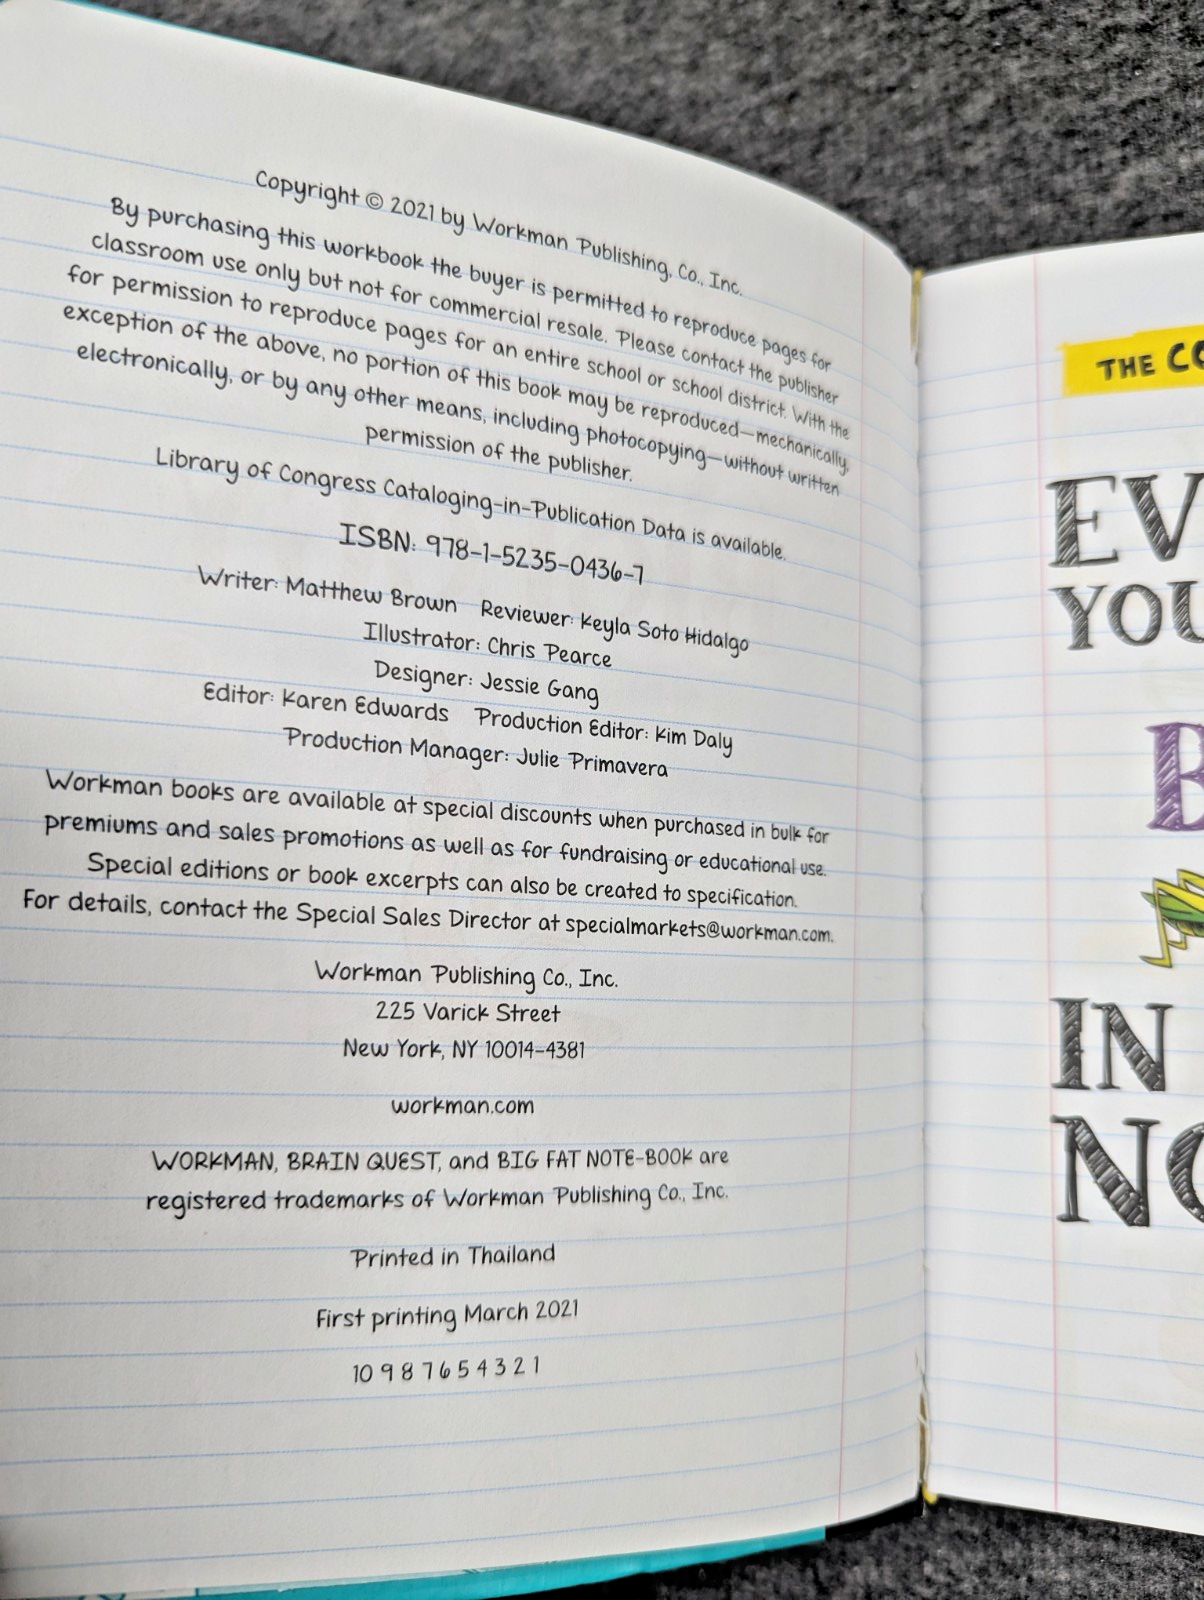 Copyright © 2021 by Workman Publishing, Co., Inc.
By purchasing this workbook the buyer is permitted to reproduce pages for
classroom use only but not for commercial resale. Please contact the publisher
for permission to reproduce pages for an entire school or school district. With the
exception of the above, no portion of this book may be reproduced—mechanically,
electronically, or by any other means, including photocopying—without written
permission of the publisher.
Library of Congress Cataloging-in-Publication Data is available.
ISBN: 978-1-5235-0436-7
Writer: Matthew Brown Reviewer: Keyla Soto Hidalgo
Illustrator: Chris Pearce
Designer: Jessie Gang
Editor: Karen Edwards Production Editor: Kim Daly
Production Manager: Julie Primavera
Workman books are available at special discounts when purchased in bulk for
premiums and sales promotions as well as for fundraising or educational use.
Special editions or book excerpts can also be created to specification.
For details, contact the Special Sales Director at specialmarkets@workman.com.
Workman Publishing Co., Inc.
225 Varick Street
New York, NY 10014-4381
workman.com
WORKMAN, BRAIN QUEST, and BIG FAT NOTE-BOOK are
registered trademarks of Workman Publishing Co., Inc.
Printed in Thailand
First printing March 2021
10 9 8 7 6 5 4 3 2 1
THE CO
EV
YOU
B
IN
NO